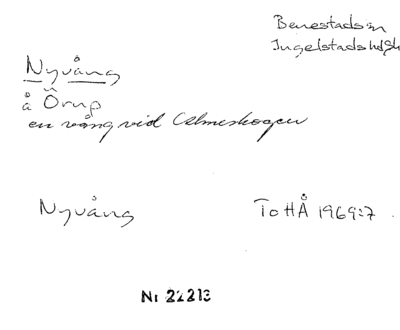 Benestads sn
Ingelstads hd, Sk
Nyvång
å Örup
en vång vid Almeskogen
Nyvång ToHÅ 1969:7
Nr 22213